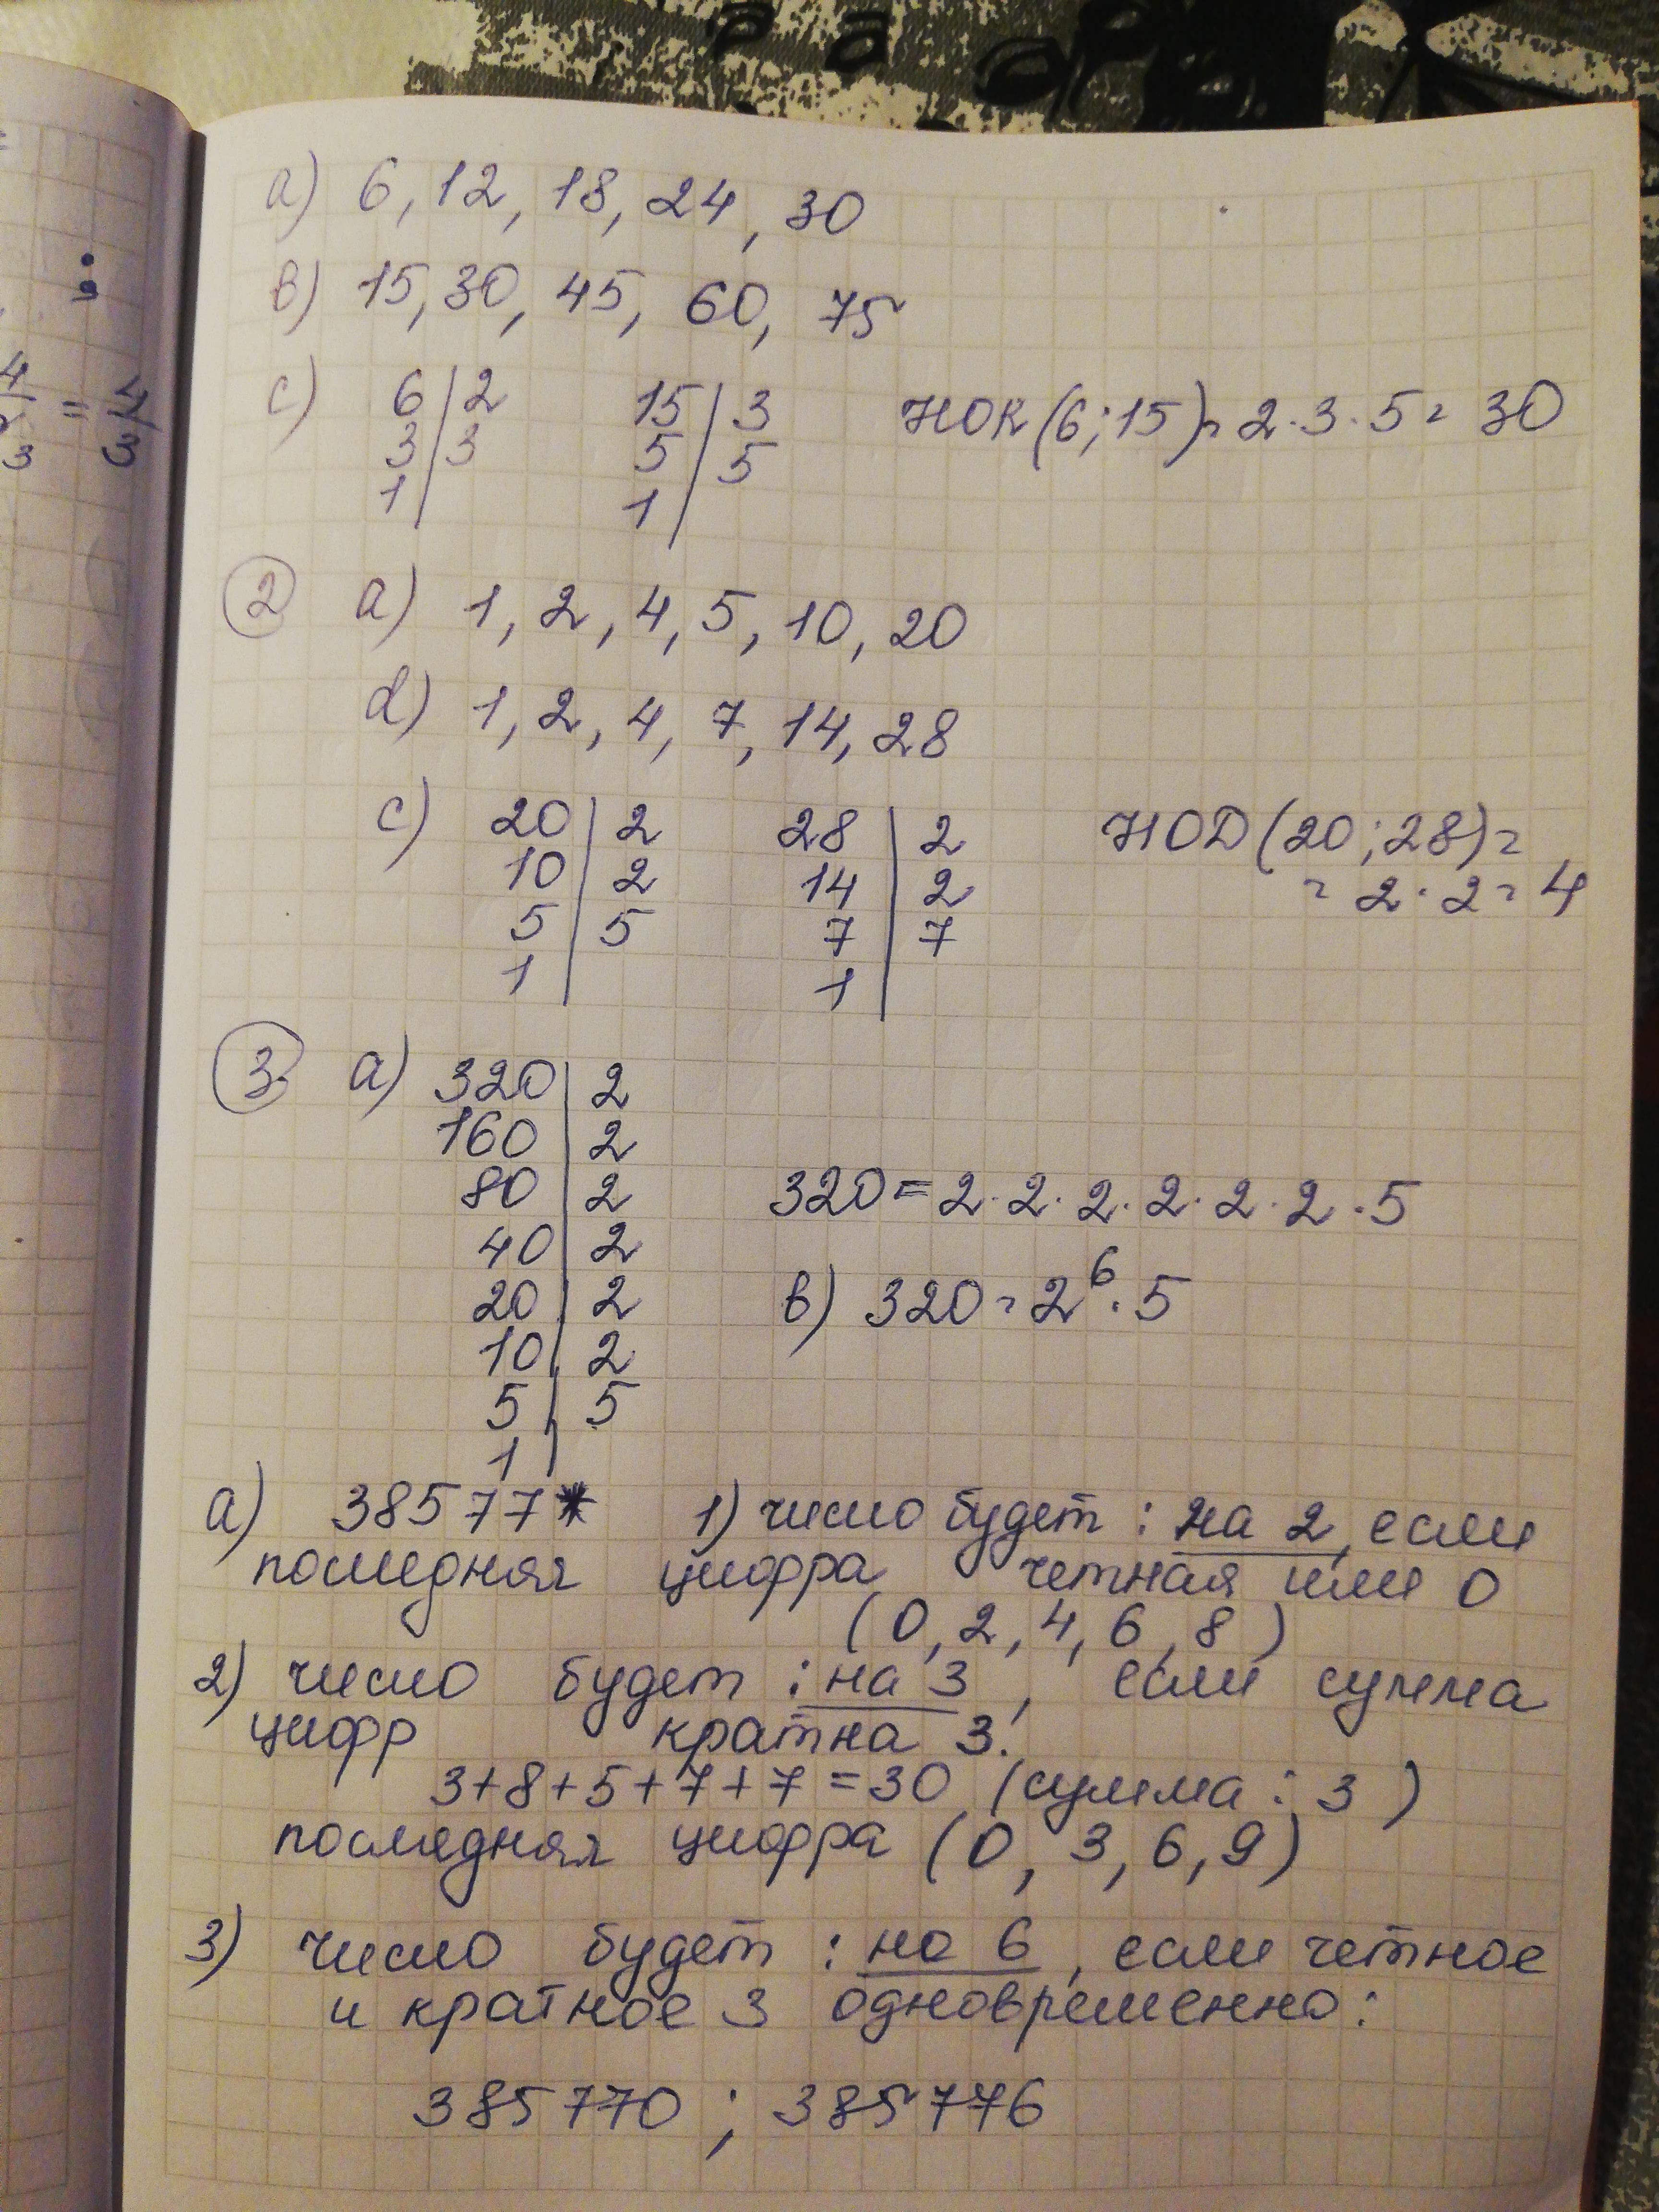 4/3 = 4/3
а) 6, 12, 18, 24, 30
в) 15, 30, 45, 60, 75
с) 6 | 2 15 | 3 НОК (6; 15) = 2 · 3 · 5 = 30
3 | 3 5 | 5
1 | 1 |
2 а) 1, 2, 4, 5, 10, 20
d) 1, 2, 4, 7, 14, 28
с) 20 | 2 28 | 2 НОD (20; 28) =
10 | 2 14 | 2 = 2 · 2 = 4
5 | 5 7 | 7
1 | 1 |
3 а) 320 | 2
160 | 2
80 | 2 320 = 2 · 2 · 2 · 2 · 2 · 2 · 5
40 | 2
20 | 2 в) 320 = 2⁶ · 5
10 | 2
5 | 5
1 |
а) 38577* 1) число будет : на 2, если
последняя цифра четная или 0
(0, 2, 4, 6, 8)
2) число будет : на 3, если сумма
цифр кратна 3.
3+8+5+7+7 = 30 (сумма : 3)
последняя цифра (0, 3, 6, 9)
3) число будет : на 6, если четное
и кратное 3 одновременно:
385770 ; 385776